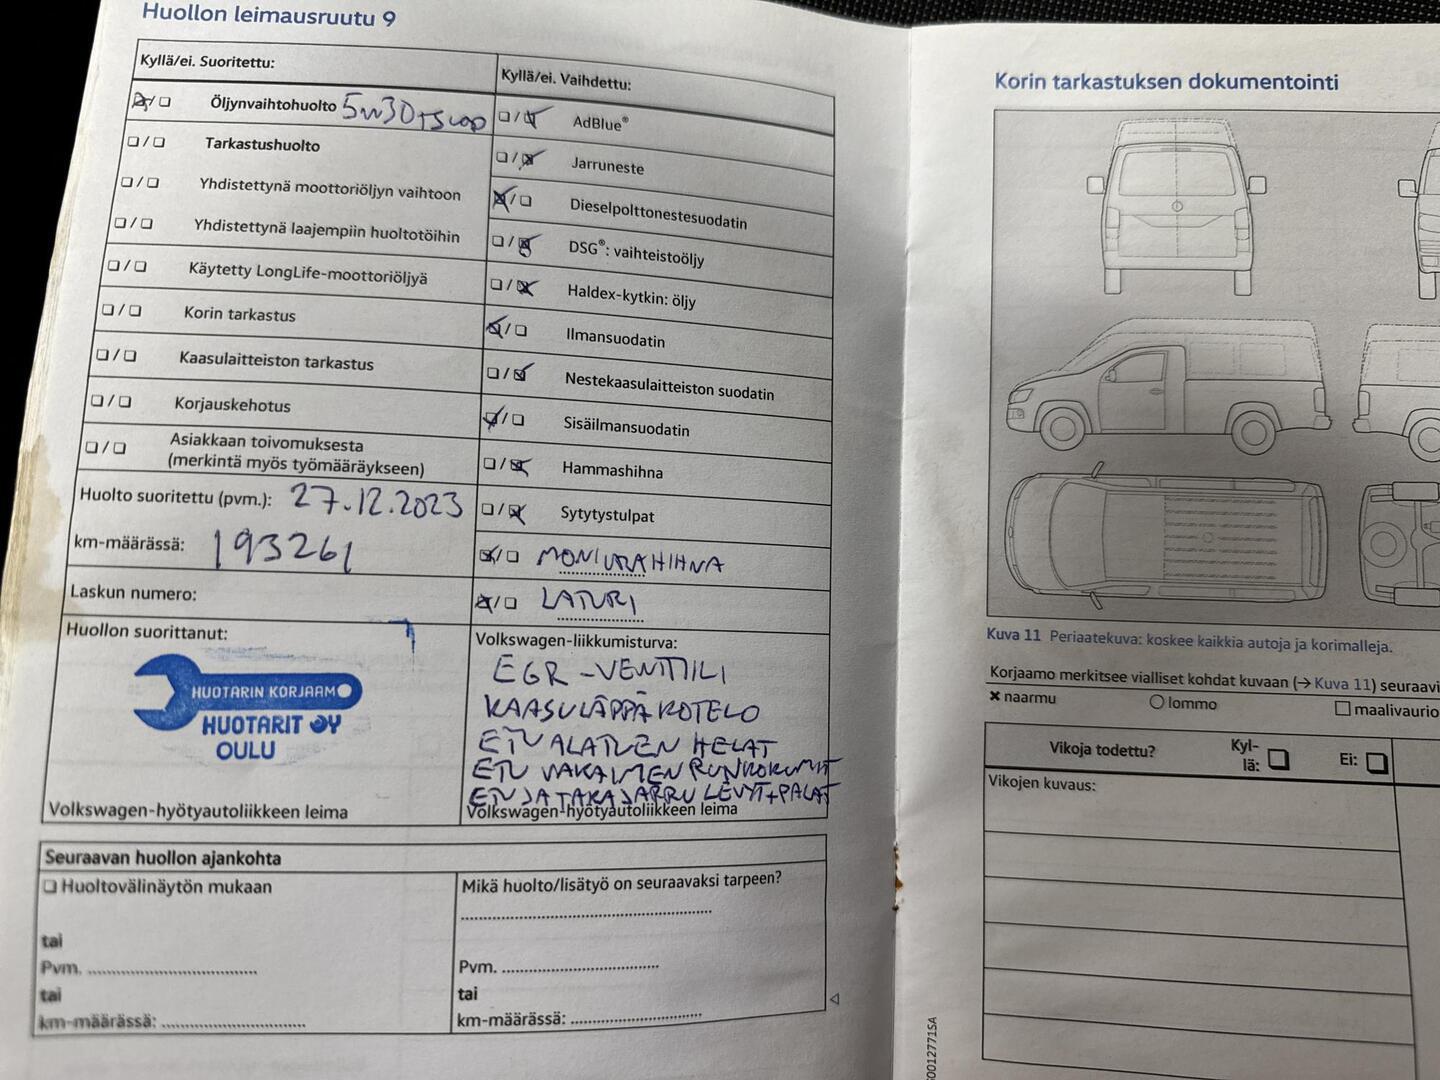 Huollon leimausruutu 9
Kyllä/ei. Suoritettu:
Öljynvaihtohuolto 5w30
Tarkastushuolto
Yhdistettynä moottoriöljyn vaihtoon
Yhdistettynä laajempiin huoltotöihin
Käytetty LongLife-moottoriöljyä
Korin tarkastus
Kaasulaitteiston tarkastus
Korjauskehotus
Asiakkaan toivomuksesta
(merkintä myös työmääräykseen)
Huolto suoritettu (pvm.): 27.12.2023
km-määrässä: 193261
Laskun numero:
Huollon suorittanut:
HUOTARIN KORJAAMO
HUOTARIT OY
OULU
Volkswagen-hyötyautoliikkeen leima
Kyllä/ei. Vaihdettu:
AdBlue®
Jarruneste
Dieselpolttonestesuodatin
DSG®: vaihteistoöljy
Haldex-kytkin: öljy
Ilmansuodatin
Nestekaasulaitteiston suodatin
Sisäilmansuodatin
Hammashihna
Sytytystulpat
MONIURAHIHNA
LATURI
Volkswagen-liikkumisturva:
EGR-VENTTIILI
KAASULÄPPÄKOTELO
ETUALATUEN HELAT
ETU VAKAIMEN RUNKOKUMIT
ETU JA TAKAJARRU LEVYT+PALAT
Volkswagen-hyötyautoliikkeen leima
Seuraavan huollon ajankohta
Huoltovälinäytön mukaan
tai
Pvm.
tai
km-määrässä:
Mikä huolto/lisätyö on seuraavaksi tarpeen?
Pvm.
tai
km-määrässä:
Korin tarkastuksen dokumentointi
Kuva 11 Periaatekuva: koskee kaikkia autoja ja korimalleja.
Korjaamo merkitsee vialliset kohdat kuvaan (→ Kuva 11) seuraavi
naarmu lommo maalivaurio
Vikoja todettu? Kyl-
lä: Ei:
Vikojen kuvaus: